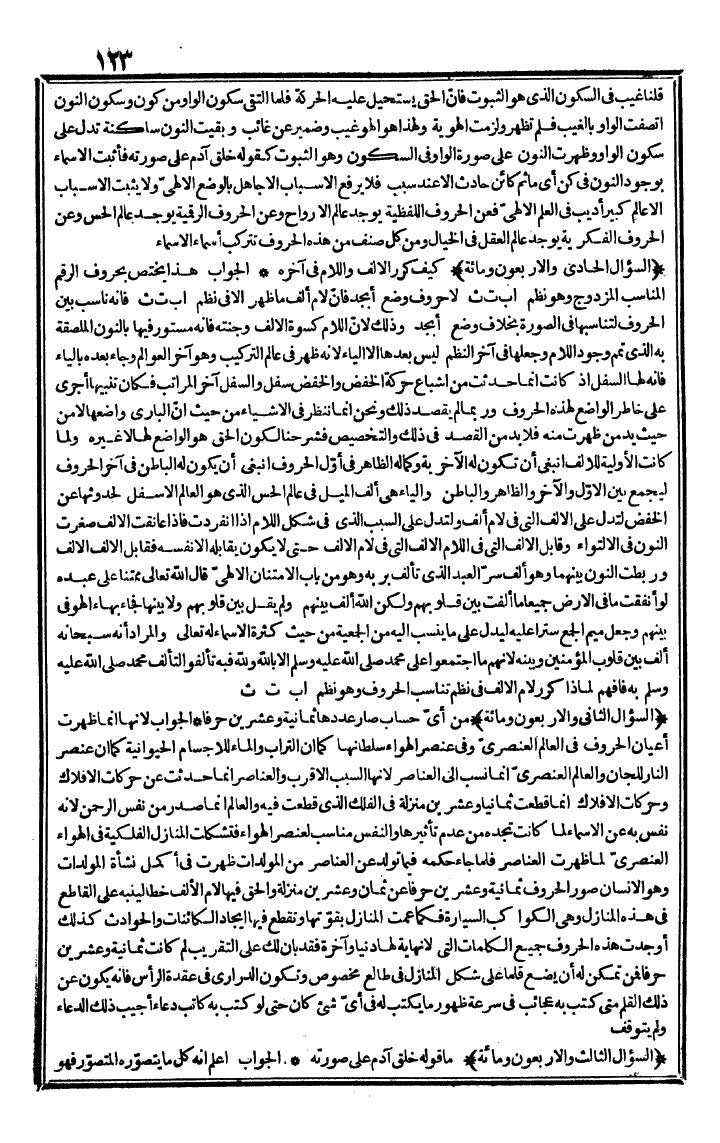 ١٢٣
قلنا غيب فى السكون الذى هو الثبوت فان الحق يستحيل عليه الحركة فلما التقى سكون الواو من كون وسكون النون
اتصفت الواو بالغيب فلم تظهر ولزمت الهوية ولهذا هو الهو غيب وضمير عن غائب وبقيت النون ساكنة تدل على
سكون الواو وظهرت النون على صورة الواو فى السكون وهو الثبوت كقوله خلق آدم على صورته فأثبت الاسماء
بوجود النون فى كن أى ما ثم كائن حادث الا عند سبب فلا يرفع الاسباب الا جاهل بالوضع الالهىّ ولا يثبت الاسباب
الا عالم كبير أديب فى العلم الالهىّ فعن الحروف اللفظية يوجد عالم الارواح وعن الحروف الرقية يوجد عالم الحس وعن
الحروف الفكرية يوجد عالم العقل فى الخيال ومن كل صنف من هذه الحروف تتركب أسماء الاسماء
﴿السؤال الحادى والاربعون ومائة﴾ كيف كرر الالف واللام فى آخره * الجواب هذا يختص بحروف الرقم
المناسب المزدوج وهو نظم ا ب ت ث لا حروف وضع أبجد فانّ لام ألف ما ظهر الا فى نظم ا ب ت ث فانه ناسب بين
الحروف لتناسبها فى الصورة بخلاف وضع أبجد وذلك لانّ اللام كسوة الالف وجنته فانه مستور فيها بالنون الملصقة
به الذى تمم وجود اللام وجعلها فى آخر النظم ليس بعدها الا الياء لانه ظهر فى عالم التركيب وهو آخر العوالم وجاء بعده بالياء
فانه لها السفل اذ كانت انما حدثت من اشباع حركة الخفض والخفض سفل والسفل آخر المراتب فكان تنبيها أجرى
على خاطر الواضع لهذه الحروف وربما لم يقصد ذلك ونحن انما ننظر فى الاشياء من حيث انّ البارى واضعها لا من
حيث يد من ظهرت منه فلا بد من القصد فى ذلك والتخصيص فشرحنا لكون الحق هو الواضع لها لا غيره ولما
كانت الأولية للالف انبغى أن تكون له الآخرية وكماله الظاهر فى أوّل الحروف انبغى أن يكون له الباطن فى آخر الحروف
ليجمع بين الاوّل والآخر والظاهر والباطن والياء هى ألف الميل فى عالم الحس الذى هو العالم الاسفل لحدوثها عن
الخفض لتدل على الالف التى فى لام ألف ولتدل على السبب الذى فى شكل اللام اذا انفردت فاذا عانقت الالف صغرت
النون فى الالتواء وقابل الالف التى فى اللام الالف التى فى لام الالف حتى لا يكون يقابله الا نفسه فقابل الالف الالف
وربطت النون بينهما وهو ألف سرّ العبد الذى تألف بربه وهو من باب الامتنان الالهىّ قال الله تعالى ممتنا على عبده
لو أنفقت ما فى الارض جميعا ما ألفت بين قلوبهم ولكن الله ألف بينهم ولم يقل بين قلوبهم ولا بينها فجاء بهاء الهو فى
بينهم وجعل ميم الجمع سترا عليه ليدل على ما ينسب اليه من الجمعية من حيث كثرة الاسماء له تعالى والمراد أنه سبحانه
ألف بين قلوب المؤمنين وبينه لانهم ما اجتمعوا على محمد صلى الله عليه وسلم الا بالله ولله فبه تألفوا لتألف محمد صلى الله عليه
وسلم به فافهم لماذا كرر لام الالف فى نظم تناسب الحروف وهو نظم ا ب ت ث
﴿السؤال الثانى والاربعون ومائة﴾ من أىّ حساب صار عددها ثمانية وعشرين حرفا * الجواب لانها انما ظهرت
أعيان الحروف فى العالم العنصرىّ وفى عنصر الهواء سلطانها كما ان التراب والماء للاجسام الحيوانية كما ان عنصر
النار للجان والعالم العنصرىّ انما نسب الى العناصر لانها السبب الاقرب والعناصر انما حدثت عن حركات الافلاك
وحركات الافلاك انما قطعت ثمانيا وعشرين منزلة فى الفلك الذى قطعت فيه والعالم انما صدر من نفس الرحمن لانه
نفس به عن الاسماء لما كانت تجده من عدم تأثيرها والنفس مناسب لعنصر الهواء فتشكلت المنازل الفلكية فى الهواء
العنصرىّ لما ظهرت العناصر فلما جاء حكمه فيما تولد عن العناصر من المولدات ظهرت فى أكمل نشأة المولدات
وهو الانسان صور الحروف ثمانية وعشرين حرفا عن ثمان وعشرين منزلة والحق فيها لام الألف خطا لينبه على القاطع
فى هذه المنازل وهى الكواكب السيارة فكما عمت المنازل بقوتها وتقطع فيها ايجاد الكائنات والحوادث كذلك
أوجدت هذه الحروف جميع الكلمات التى لا نهاية لها دنيا وآخرة فقد بان لك على التقريب لم كانت ثمانية وعشرين
حرفا فمن تمكن له أن يضع قلما على شكل المنازل فى طالع مخصوص وتكون الدرارى فى عقدة الرأس فانه يكون عن
ذلك القلم متى كتب به عجائب فى سرعة ظهور ما يكتب له فى أىّ شئ كان حتى لو كتب به كاتب دعاء أجيب ذلك الدعاء
ولم يتوقف
﴿السؤال الثالث والاربعون ومائة﴾ ما قوله خلق آدم على صورته * الجواب اعلم انه كل ما يتصوّره المتصوّر فهو